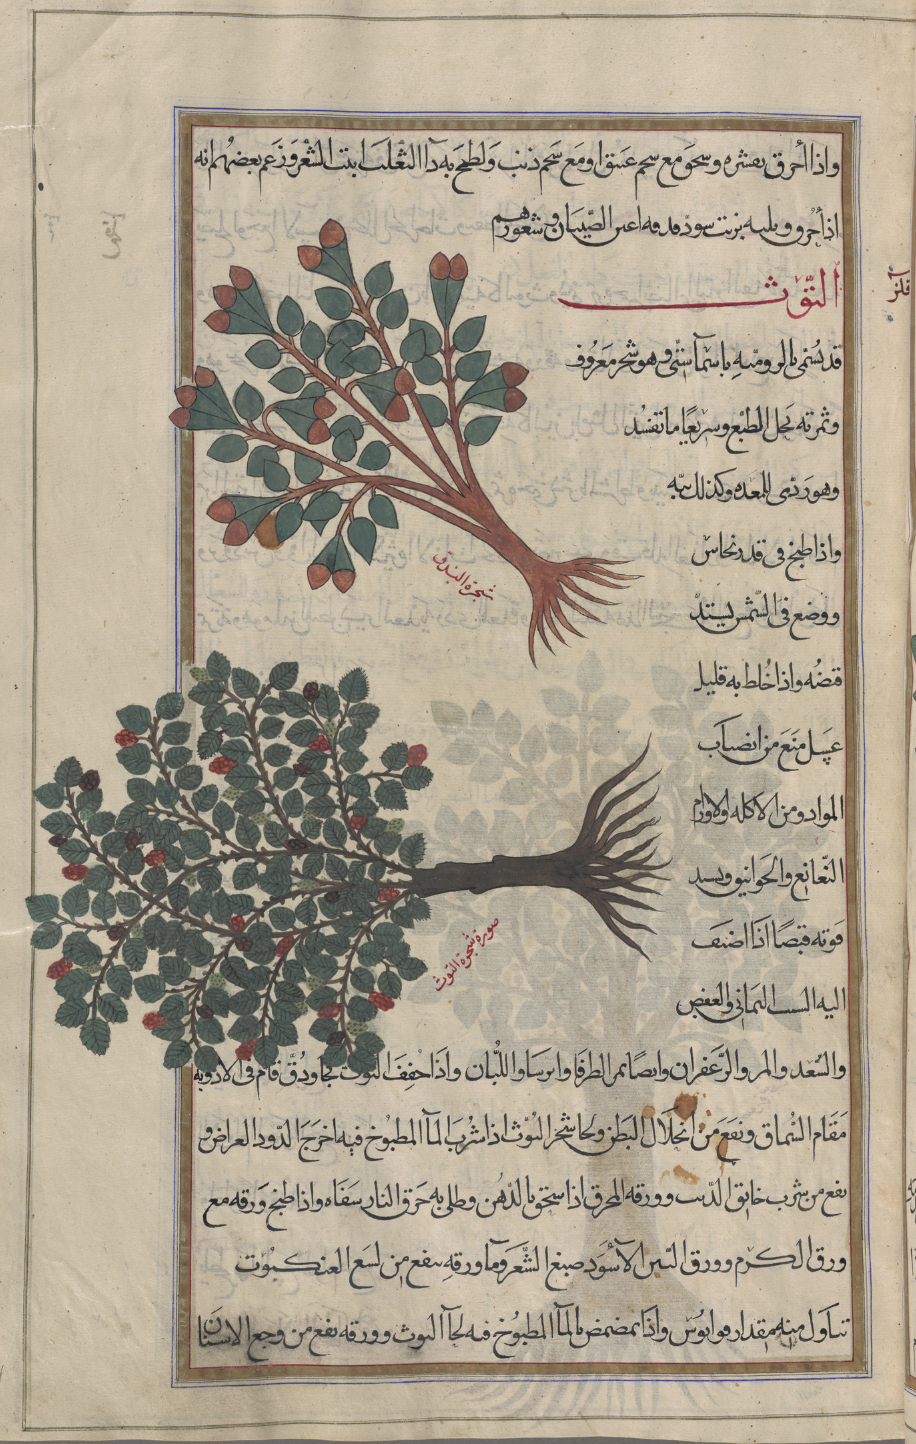 واذا أحرق بقشره وسحق مع شحم عتيق او مع شحم دب ولطخ به دآ الثعلب انبت الشعر وزعم بعضهم انه
اذا أحرق وبلبه بزيت سود اعين الصّبيان وشعورهم
التّوث
قد يسمى بالرومية باسم آ وهو شجر معروف
وثمرته تحل الطبع وسريعًا ما تفسد
وهو ردى للمعده وكذلك
واذا طبخ فى قدر نحاس
ووضع فى الشمس يشتدّ
قبضُه واذا خُلط به قليل
عسل منع من انصباب
المواد ومن الاكله والاورام
النّغانغ والخوانيق ويشد
قوته قبضًا اذا اضيف
اليه الشب اليمانى والعفص
والسُعد والمر والزّعفران وايضًا ثمر الطرفا وايرسا واللُّبان واذا جفف التوث فجا ودُقّ قام فى الادويه
مَقَام السُماق ونفع من انحلال البَطن ولحا شجر التُوث اذا شُرب المآ المطبوخ فيه اخرج الدّود العراض و
نفع من شرب خانق الذّئب وورقه المحرق اذا سحق بالدّهن وطلى به حَرق النار شفَاه واذا طبخ وَرقه مع
ورق الكرم وورق التّين الأسْود صبغ الشّعر وما ورقهِ ينفع من لسَع العنكبُوت
تناول منه مقدار قوابُوس واذا تمضمض بالمآ المطبوُخ فيه لحآ التوث وورقه نفع من وجع الاسنان
شجرة البندق
صورة شجرة التوث